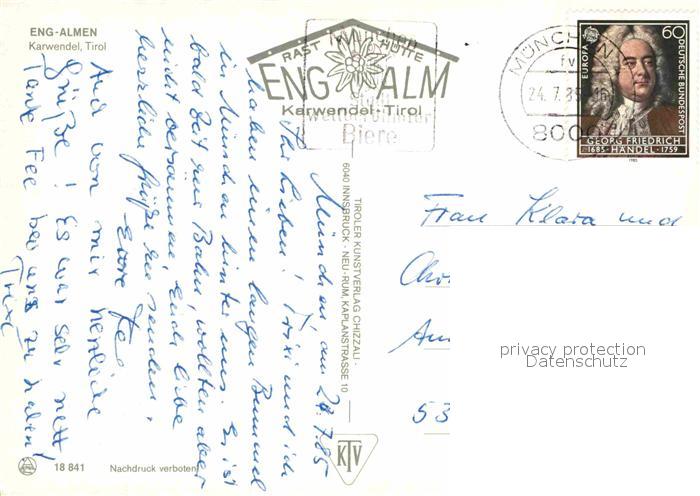 ENG-ALMEN
Karwendel, Tirol
RAST HÜTTE
ENG ALM
Karwendel-Tirol
München
Biere
MÜNCHEN
fv
24.7.85
8000
60
EUROPA
DEUTSCHE BUNDESPOST
GEORG FRIEDRICH
1685-HÄNDEL-1759
1985
München, am 24.7.85
Ihr Lieben! Trixi und ich
haben einen langen Bummel
in München hinter uns. Es ist
bald Zeit zur Bahn, wollten aber
nicht versäumen, Euch liebe
herzliche Grüße zu senden.
Eure Fee
Auch von mir herzliche
Grüße! Es war sehr nett
Tante Fee bei uns zu haben!
Trixi
TIROLER KUNSTVERLAG CHIZZALI ·
6040 INNSBRUCK - NEU-RUM, KAPLANSTRASSE 10
Frau Klara und
53
privacy protection
Datenschutz
KTV
18 841 Nachdruck verboten